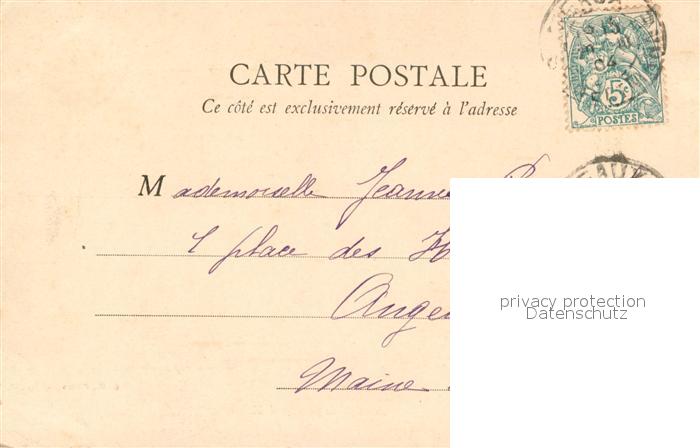 5c
POSTES
CARTE POSTALE
Ce côté est exclusivement réservé à l'adresse
Mademoiselle Jeanne
place des
Maine
privacy protection
Datenschutz